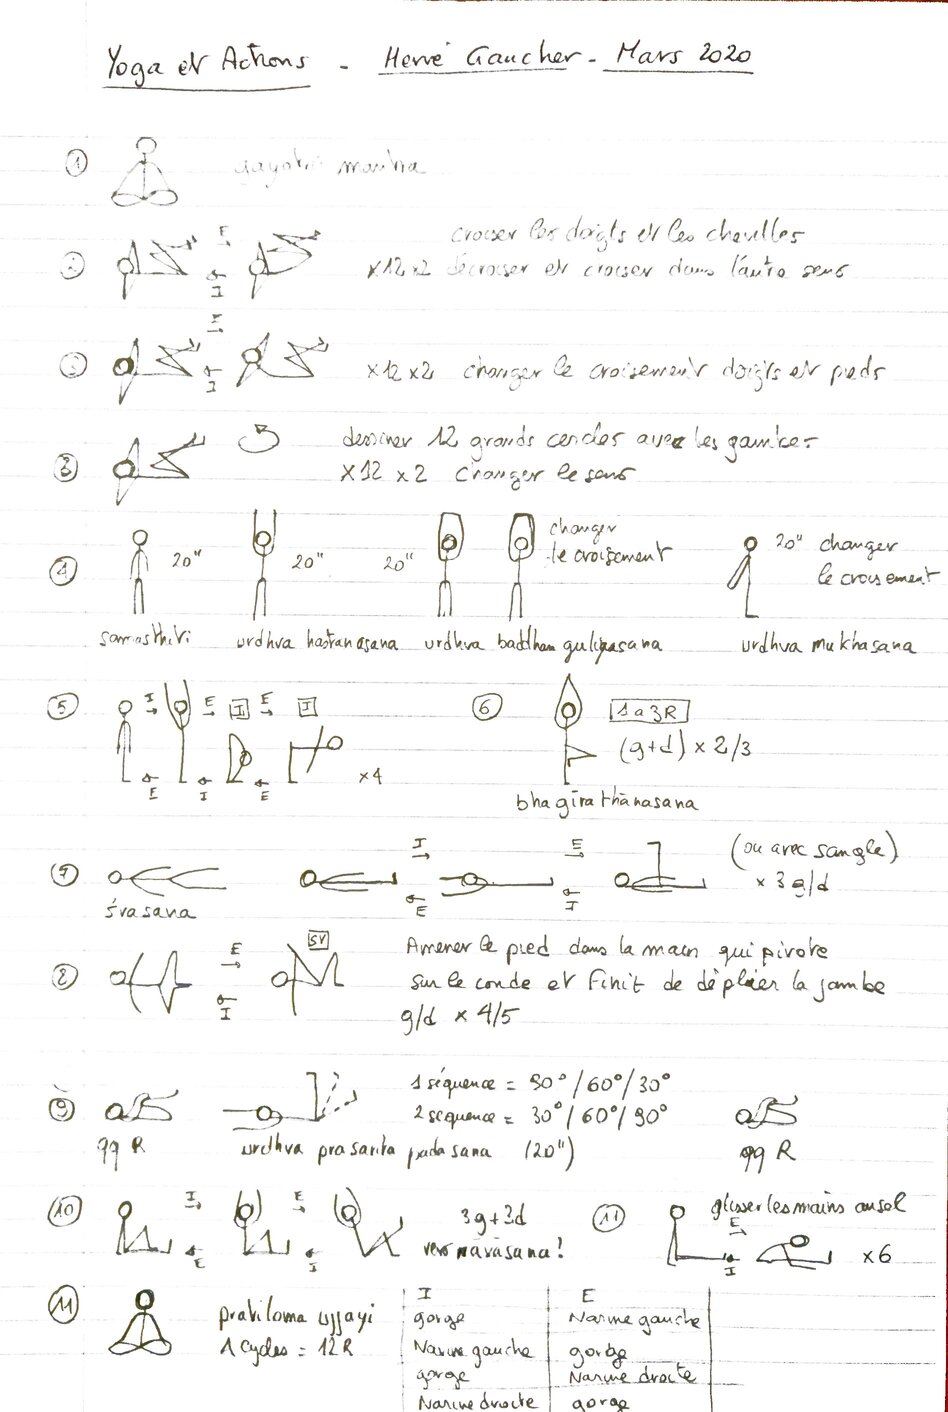 Yoga et Actions - Hervé Gaucher - Mars 2020
1 gayatri mantra
croiser les doigts et les chevilles
2 E I x12x2 décroiser et croiser dans l'autre sens
3 E I x12 x2 changer le croisement doigts et pieds
dessiner 12 grands cercles avec les gambes
3 x12 x2 changer le sens
changer
4 20" 20" 20" le croisement 20" changer
le croisement
samasthiti urdhva hastanasana urdhva baddhangulyasana urdhva mukhasana
5 I E I E I 6 1 a 3R
(g+d) x 2/3
E I E x4
bhagirathanasana
7 I E (ou avec sangle)
E I x 3 g/d
śvasana
8 E I SV Amener le pied dans la main qui pivote
sur le coude et finit de déplier la jambe
g/d x 4/5
1 séquence = 90°/60°/30°
9 2 séquence = 30°/60°/90°
qq R urdhva prasarita padasana (20") qq R
10 I E 3g+3d 11 glisser les mains au sol
E I vers navāsana! E I x6
11 pratiloma ujjayi
1 Cycles = 12R
I E
gorge Narine gauche
Narine gauche gorge
gorge Narine droite
Narine droite gorge